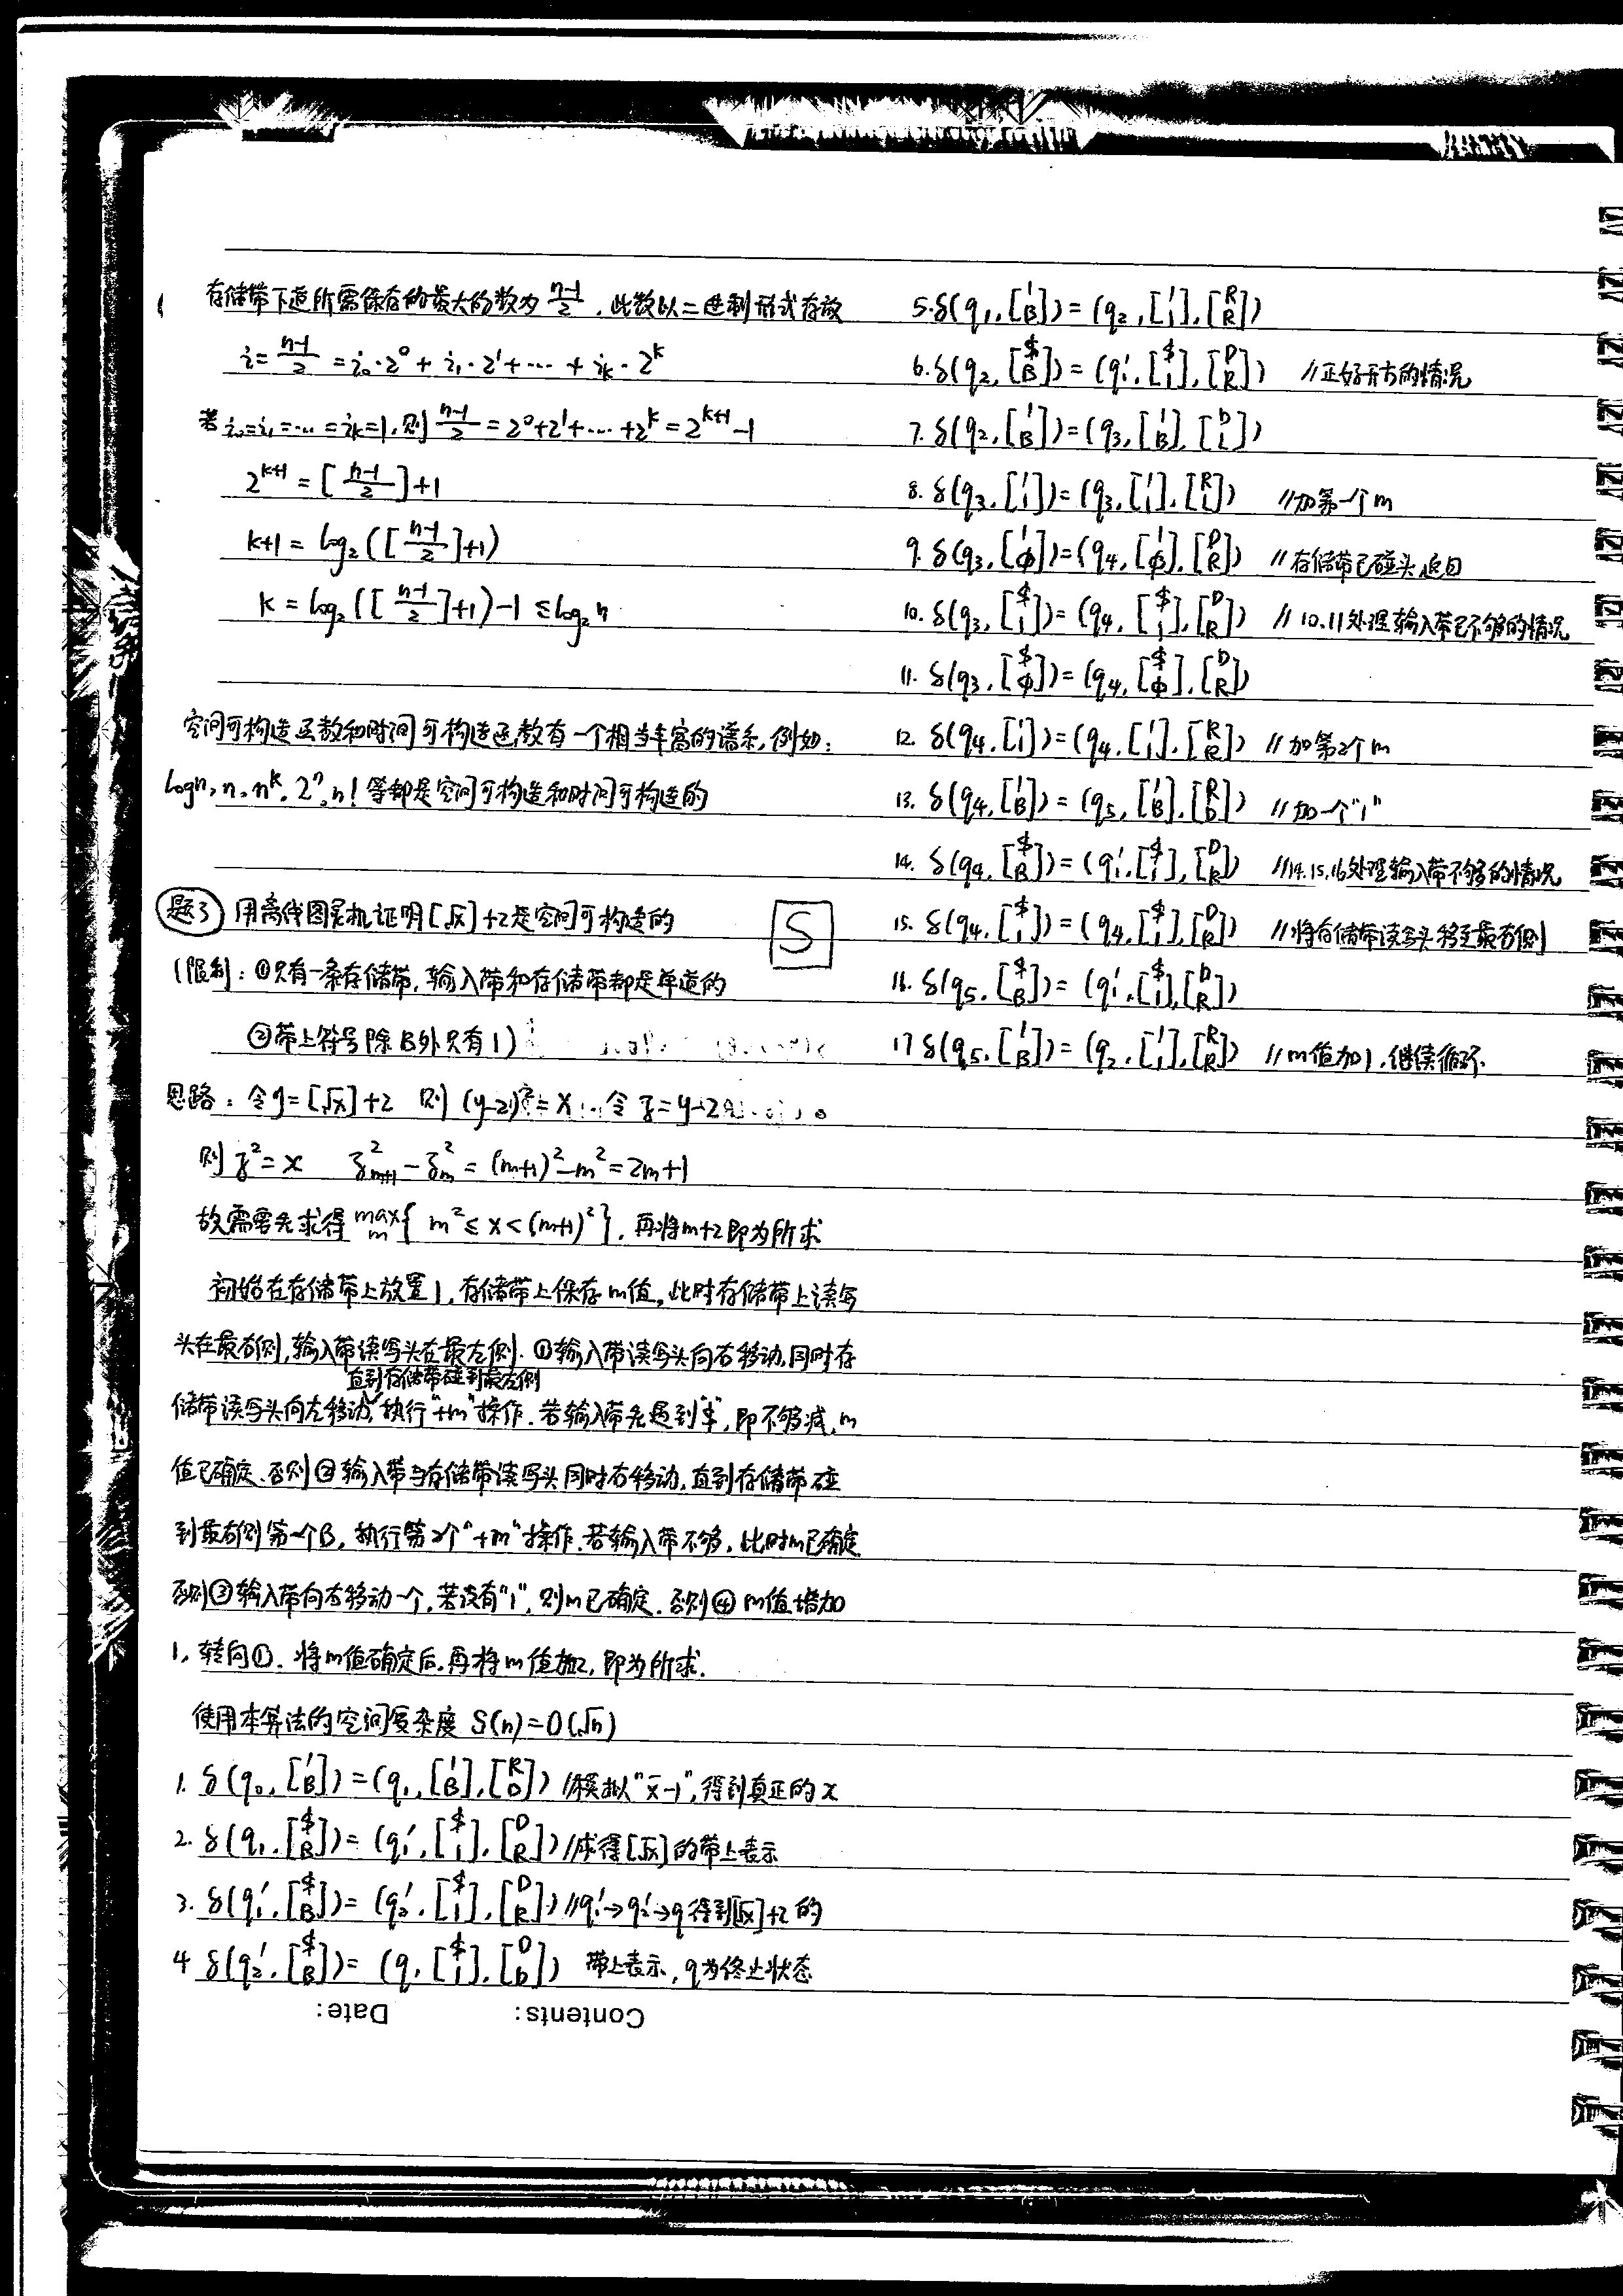 存储带下道所需保存的最大的数为 (n-1)/2 , 此数以二进制形式存放
i = (n-1)/2 = i₀·2⁰ + i₁·2¹ + ⋯ + iₖ·2ᵏ
若 i₀=i₁=⋯=iₖ=1, 则 (n-1)/2 = 2⁰+2¹+⋯+2ᵏ = 2ᵏ⁺¹-1
2ᵏ⁺¹ = [(n-1)/2]+1
k+1 = log₂([(n-1)/2]+1)
k = log₂([(n-1)/2]+1)-1 ≤ log₂n
空间可构造函数和时间可构造函数有一个相当丰富的谱系, 例如:
logn, n, nᵏ, 2ⁿ, n! 等都是空间可构造和时间可构造的
题3 用离线图灵机证明[√x]+2是空间可构造的
S
(限制: ①只有一条存储带, 输入带和存储带都是单道的
②带上符号除B外只有1)
思路: 令y=[√x]+2 则 (y-2)²=x 令 z=y-2
则 z²=x z²ₘ₊₁-z²ₘ=(m+1)²-m²=2m+1
故需要先求得 max_m{ m² ≤ x < (m+1)² }, 再将m+2即为所求
初始在存储带上放置1, 存储带上保存m值, 此时存储带上读写
头在最右侧, 输入带读写头在最左侧. ①输入带读写头向右移动, 同时存
直到存储带碰到最左侧
储带读写头向左移动, 执行"+m"操作. 若输入带先遇到"$", 即不够减, m
值已确定. 否则②输入带与存储带读写头同时右移动, 直到存储带碰
到最右侧第一个B, 执行第2个"+m"操作. 若输入带不够, 此时m已确定
否则③输入带向右移动一个, 若没有"1", 则m已确定. 否则④m值增加
1, 转向①. 将m值确定后, 再将m值加2, 即为所求.
使用本算法的空间复杂度 S(n)=O(√n)
1. δ(q₀, [1 B])=(q₁, [1 B], [R D]) //模拟"x-1", 得到真正的x
2. δ(q₁, [$ B])=(q₁', [$ 1], [D R]) //求得[√x]的带上表示
3. δ(q₁', [$ B])=(q₂', [$ 1], [D R]) //q₁'→q₂'→q 得到[√x]+2的
4 δ(q₂', [$ B])=(q, [$ 1], [D D]) 带上表示, q为终止状态
5. δ(q₁, [1 B])=(q₂, [1 1], [R R])
6. δ(q₂, [$ B])=(q₁', [$ 1], [D R]) //正好开方的情况
7. δ(q₂, [1 B])=(q₃, [1 B], [D L])
8. δ(q₃, [1 1])=(q₃, [1 1], [R L]) //加第一个m
9. δ(q₃, [1 ϕ])=(q₄, [1 ϕ], [D R]) //存储带已碰头, 返回
10. δ(q₃, [$ 1])=(q₄, [$ 1], [D R]) //10.11处理输入带已不够的情况
11. δ(q₃, [$ ϕ])=(q₄, [$ ϕ], [D R])
12. δ(q₄, [1 1])=(q₄, [1 1], [R R]) //加第2个m
13. δ(q₄, [1 B])=(q₅, [1 B], [R D]) //加一个"1"
14. δ(q₄, [$ B])=(q₁', [$ 1], [D R]) //14.15.16处理输入带不够的情况
15. δ(q₄, [$ 1])=(q₄, [$ 1], [D R]) //将存储带读写头移至最右侧
16. δ(q₅, [$ B])=(q₁', [$ 1], [D R])
17 δ(q₅, [1 B])=(q₂, [1 1], [R R]) //m值加1, 继续循环
Contents:
Date: